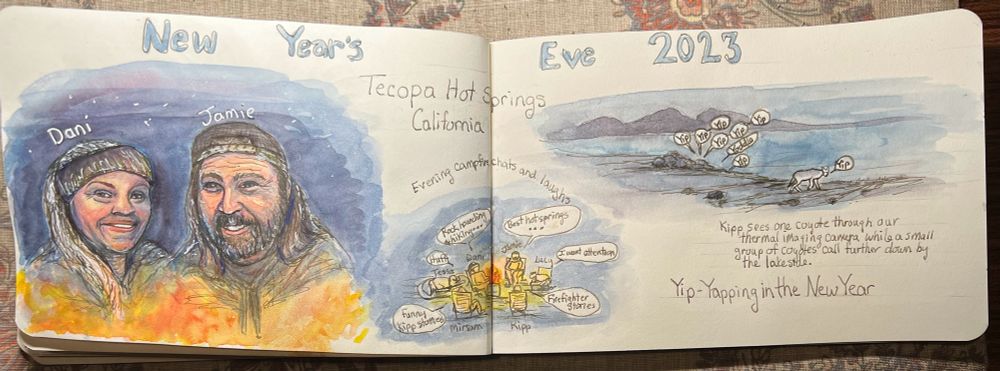 New Year's Eve 2023
Dani
Jamie
Tecopa Hot Springs
California
Evening campfire chats and laughs
Rock hounding
& hiking...
Best hotsprings
...
Dani
Jamie
Lucy
I want attention
Tesla
Funny
Kipp stories
Miriam
Kipp
Firefighter
Stories
Yip
Yip
Yip
Yip
Yip
Yip
Yip
Yip
Kipp sees one coyote through our
thermal imaging camera, while a small
group of coyotes call further down by
the lakeside.
Yip-Yapping in the New Year